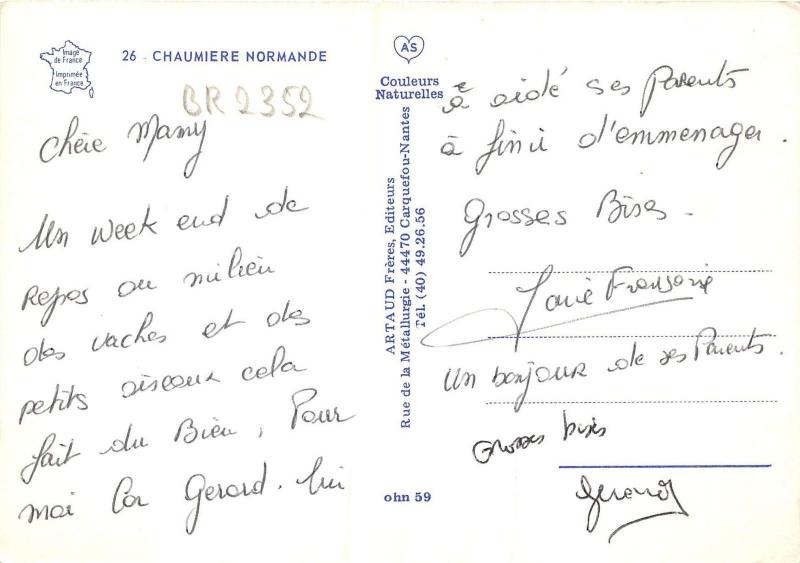 Image
de France
Imprimée
en France
26 - CHAUMIERE NORMANDE
BR 2352
Chère Mamy
Un week end de
repos au milieu
des vaches et des
petits oiseaux cela
fait du Bien, Pour
moi Car Gerard. lui
AS
Couleurs
Naturelles
ARTAUD Frères, Editeurs
Rue de la Métallurgie - 44470 Carquefou-Nantes
Tél. (40) 49.26.56
ohn 59
à aidé ses Parents
à finir d'emmenager.
Grosses Bises -
Françoise
Un bonjour de ses Parents.
Grosses bises
Gerard